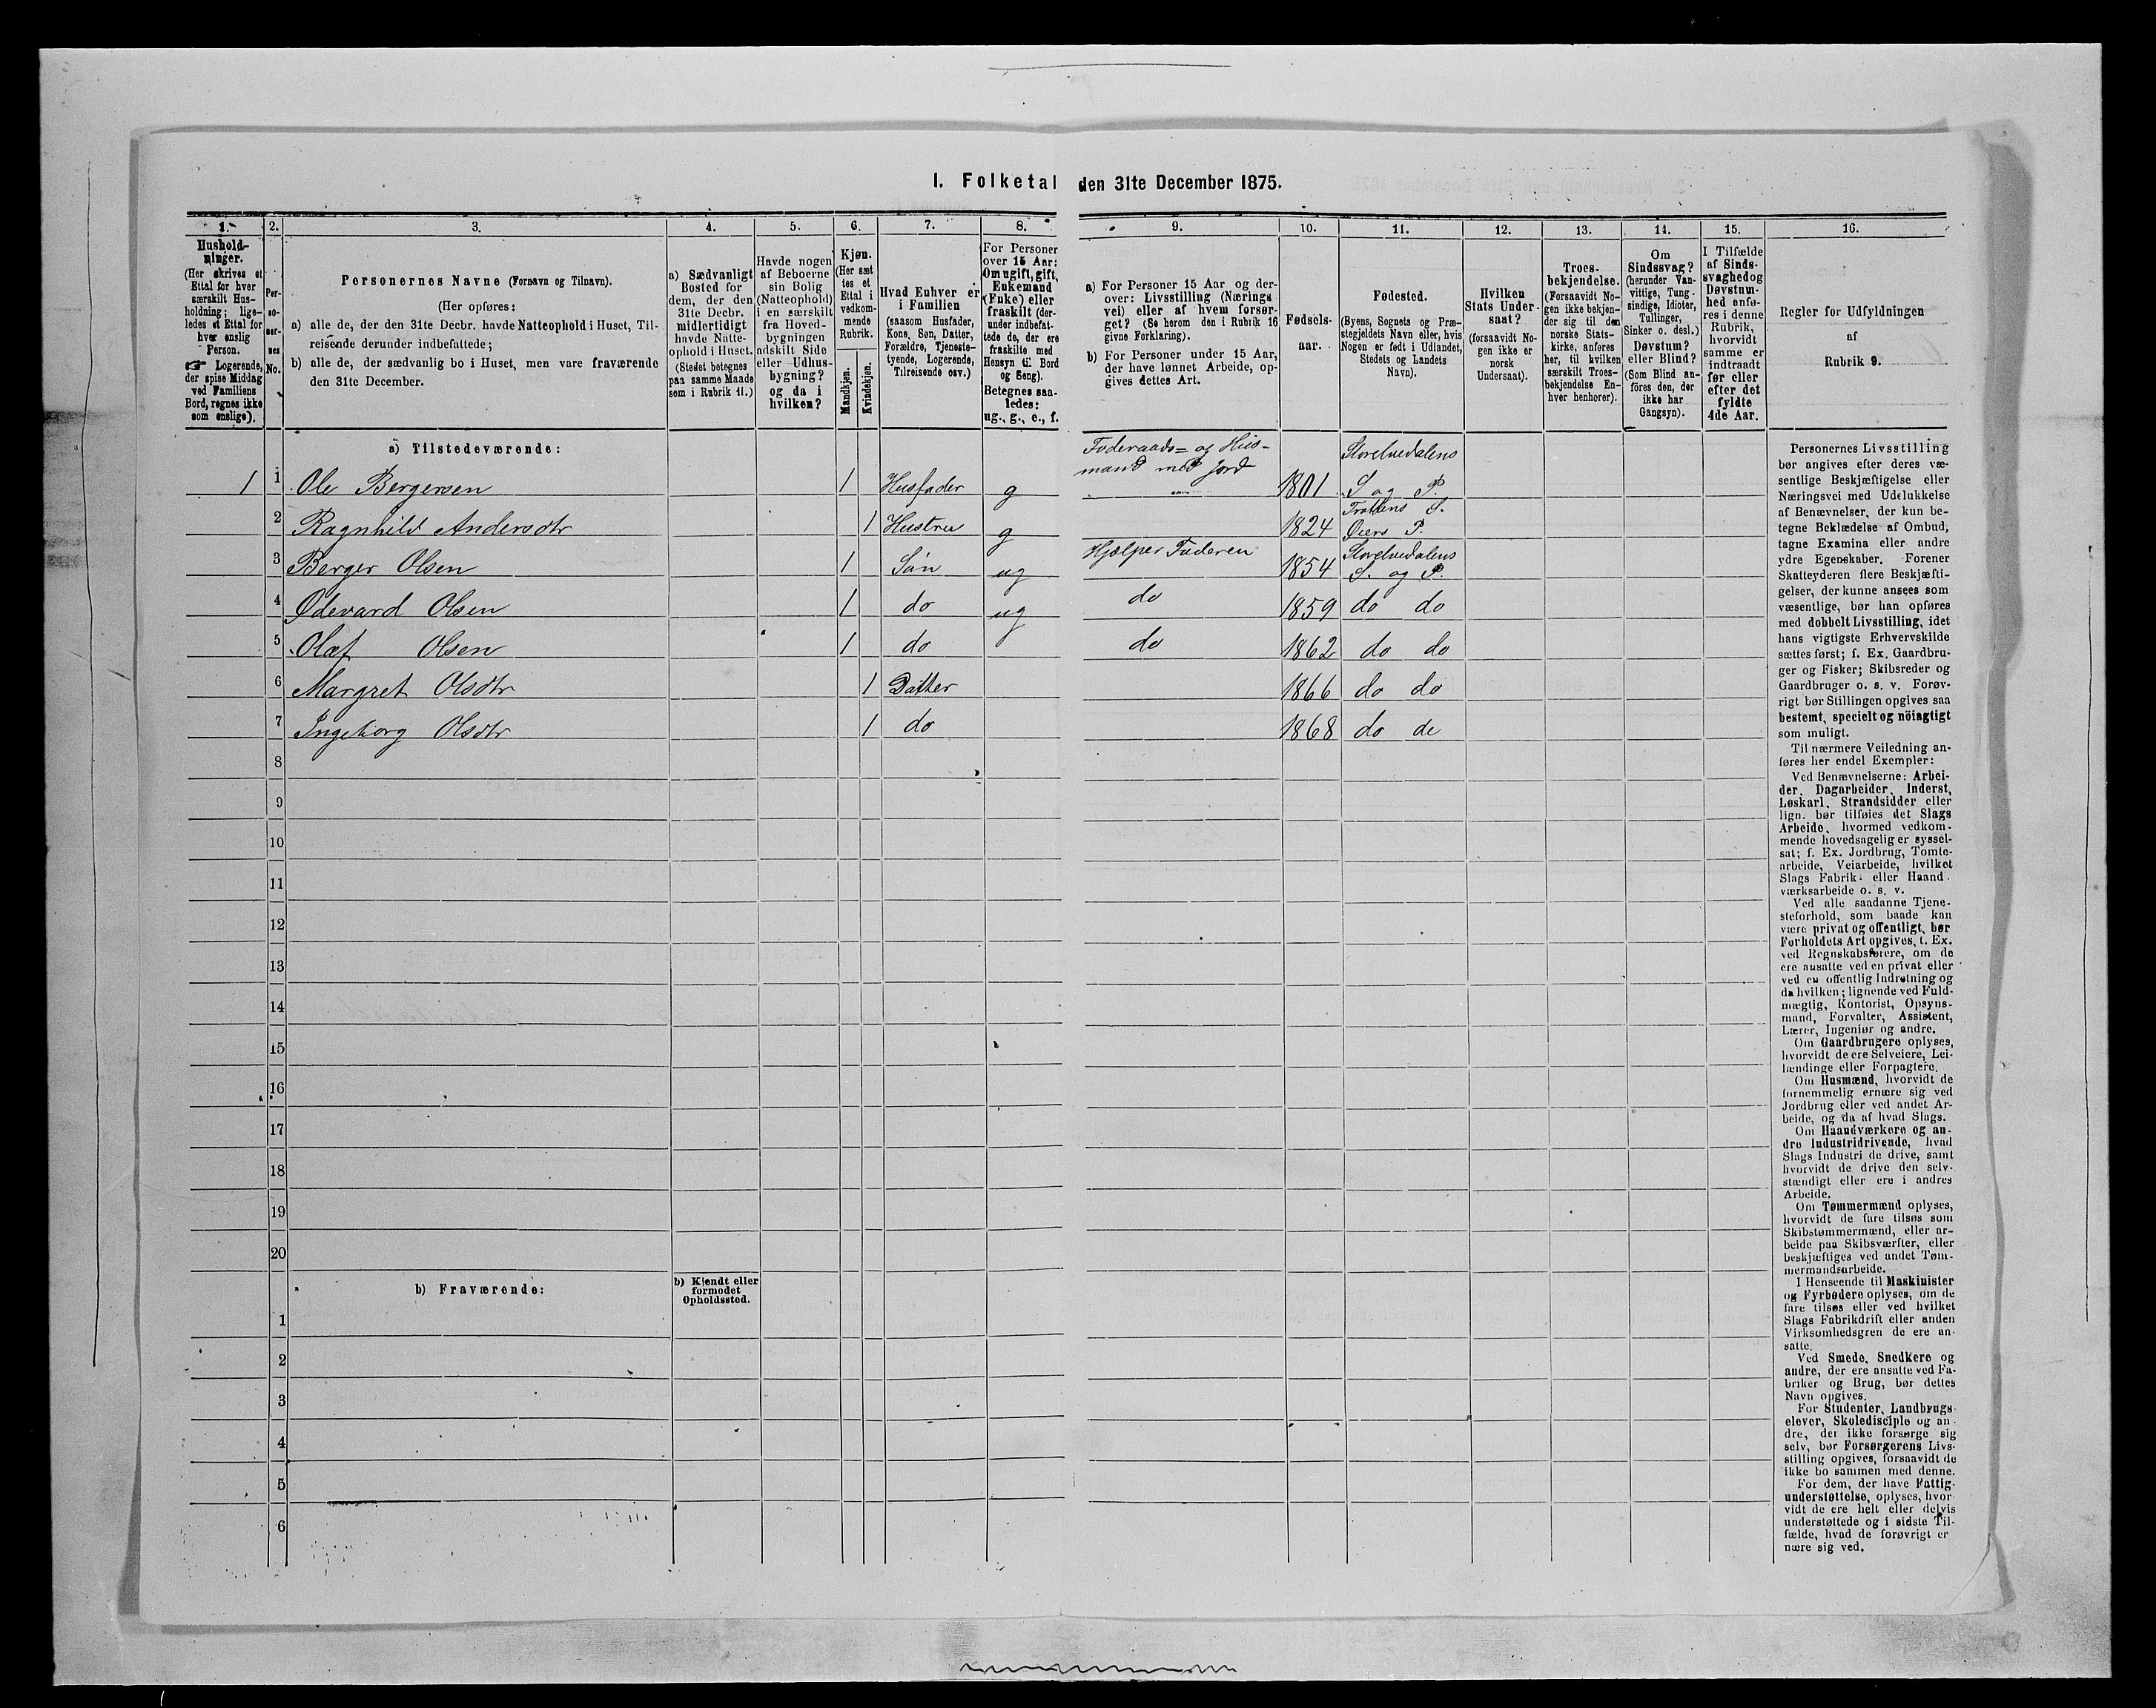 I. Folketal den 31te December 1875.
1.
Hushold-
ninger.
(Her skrives et
Ettal for hver
særskilt Hus-
holdning; lige-
ledes et Ettal for
hver enslig
Person.
☞ Logerende,
der spise Middag
ved Familiens
Bord, regnes ikke
som enslige).
2.
Per-
so-
ner-
nes
No.
3.
Personernes Navne (Fornavn og Tilnavn).
(Her opføres:
a) alle de, der den 31te Decbr. havde Natteophold i Huset, Til-
reisende derunder indbefattede;
b) alle de, der sædvanlig bo i Huset, men vare fraværende
den 31te December.
4.
a) Sædvanligt
Bosted for
dem, der den
31te Decbr.
midlertidigt
havde Natte-
ophold i Huset.
(Stedet betegnes
paa samme Maade
som i Rubrik 11.)
5.
Havde nogen
af Beboerne
sin Bolig
(Natteophold)
i en særskilt
fra Hoved-
bygningen
adskilt Side
eller Udhus-
bygning?
og da i
hvilken?
6.
Kjøn.
(Her sæt
tes et
Ettal i
vedkom-
mende
Rubrik.
Mandkjøn.
Kvindekjøn.
7.
Hvad Enhver er
i Familien
(saasom Husfader,
Kone, Søn, Datter,
Forældre, Tjeneste-
tyende, Logerende,
Tilreisende osv.)
8.
For Personer
over 15 Aar:
Om ugift, gift,
Enkemand
(Enke) eller
fraskilt (der-
under indbefat-
tede de, der ere
fraskilte med
Hensyn til Bord
og Seng).
Betegnes saa-
ledes:
ug., g., e., f.
9.
a) For Personer 15 Aar og der-
over: Livsstilling (Nærings
vei) eller af hvem forsør-
get? (Se herom den i Rubrik 16
givne Forklaring).
b) For Personer under 15 Aar,
der have lønnet Arbeide, op-
gives dettes Art.
10.
Fødsels-
aar.
11.
Fødested.
(Byens, Sognets og Præ-
stegjeldets Navn eller, hvis
Nogen er født i Udlandet,
Stedets og Landets
Navn).
12.
Hvilken
Stats Under-
saat?
(forsaavidt No-
gen ikke er
norsk
Undersaat).
13.
Troes-
bekjendelse.
(Forsaavidt No-
gen ikke bekjen-
der sig til den
norske Stats-
kirke, anføres
her, til hvilken
særskilt Troes-
bekjendelse En-
hver henhører).
14.
Om
Sindssvag?
(herunder Van-
vittige, Tung-
sindige, Idioter,
Tullinger,
Sinker o. desl.)
Døvstum?
eller Blind?
(Som Blind an-
föres den, der
ikke har
Gangsyn).
15.
I Tilfælde
af Sinds-
svaghed og
Døvstum-
hed anfø-
res i denne
Rubrik,
hvorvidt
samme er
indtraadt
før eller
efter det
fyldte
4de Aar.
16.
Regler for Udfyldningen
af
Rubrik 9.
a) Tilstedeværende:
Foderaads= og Hus-
mand med Jord
Storelvedalens
1 1 Ole Bergersen 1 Husfader g 1801 S og P.
Trottens S.
2 Ragnhild Andersdtr 1 Hustru g 1824 Øiers P.
Hjælper Faderen Storelvedalens
3 Berger Olsen 1 Søn ug 1854 S. og P.
4 Ødevard Olsen 1 do ug do 1859 do do
5 Olaf Olsen 1 do do 1862 do do
6 Margret Olsdtr 1 Datter 1866 do do
7 Ingeborg Olsdtr 1 do 1868 do do
8
9
10
11
12
13
14
15
16
17
18
19
20
b) Fraværende:
b) Kjendt eller
formodet
Opholdssted.
1
2
3
4
5
6
Personernes Livsstilling
bør angives efter deres væ-
sentlige Beskjæftigelse eller
Næringsvei med Udelukkelse
af Benævnelser, der kun be-
tegne Beklædelse af Ombud,
tagne Examina eller andre
ydre Egenskaber. Forener
Skatteyderen flere Beskjæfti-
gelser, der kunne ansees som
væsentlige, bør han opføres
med dobbelt Livsstilling, idet
hans vigtigste Erhvervskilde
sættes først; f. Ex. Gaardbru-
ger og Fisker; Skibsreder og
Gaardbruger o. s. v. Forøv-
rigt bør Stillingen opgives saa
bestemt, specielt og nöiagtigt
som muligt.
Til nærmere Veiledning an-
føres her endel Exempler:
Ved Benævnelserne: Arbei-
der, Dagarbeider, Inderst,
Løskarl, Strandsidder eller
lign. bør tilføies det Slags
Arbeide, hvormed vedkom-
mende hovedsagelig er syssel-
sat; f. Ex. Jordbrug, Tomte-
arbeide, Veiarbeide, hvilket
Slags Fabrik- eller Haand-
værksarbeide o. s. v.
Ved alle saadanne Tjene-
steforhold, som baade kan
være privat og offentligt, bør
Forholdets Art opgives, f. Ex.
ved Regnskabsførere, om de
ere ansatte ved en privat eller
ved en offentlig Indretning og
da hvilken; lignende ved Fuld-
mægtig, Kontorist, Opsyns-
mand, Forvalter, Assistent,
Lærer, Ingeniør og andre.
Om Gaardbrugere oplyses,
hvorvidt de ere Selveiere, Lei-
lændinge eller Forpagtere.
Om Husmænd, hvorvidt de
fornemmelig ernære sig ved
Jordbrug eller ved andet Ar-
beide, og da af hvad Slags.
Om Haandværkere og an-
dre Industridrivende, hvad
Slags Industri de drive, samt
hvorvidt de drive den selv-
stændigt eller ere i andres
Arbeide.
Om Tømmermænd oplyses,
hvorvidt de fare tilsøs som
Skibstømmermænd, eller ar-
beide paa Skibsværfter, eller
beskjæftiges ved andet Tøm-
mermandsarbeide.
I Henseende til Maskinister
og Fyrbødere oplyses, om de
fare tilsøs eller ved hvilket
Slags Fabrikdrift eller anden
Virksomhedsgren de ere an-
satte.
Ved Smede, Snedkere og
andre, der ere ansatte ved Fa-
briker og Brug, bør dettes
Navn opgives.
For Studenter, Landbrugs-
elever, Skoledisciple og an-
dre, der ikke forsørge sig
selv, bør Forsørgerens Livs-
stilling opgives, forsaavidt de
ikke bo sammen med denne.
For dem, der have Fattig-
understøttelse, oplyses, hvor-
vidt de ere helt eller delvis
understøttede og i sidste Til-
fælde, hvad de forøvrigt er
nære sig ved.